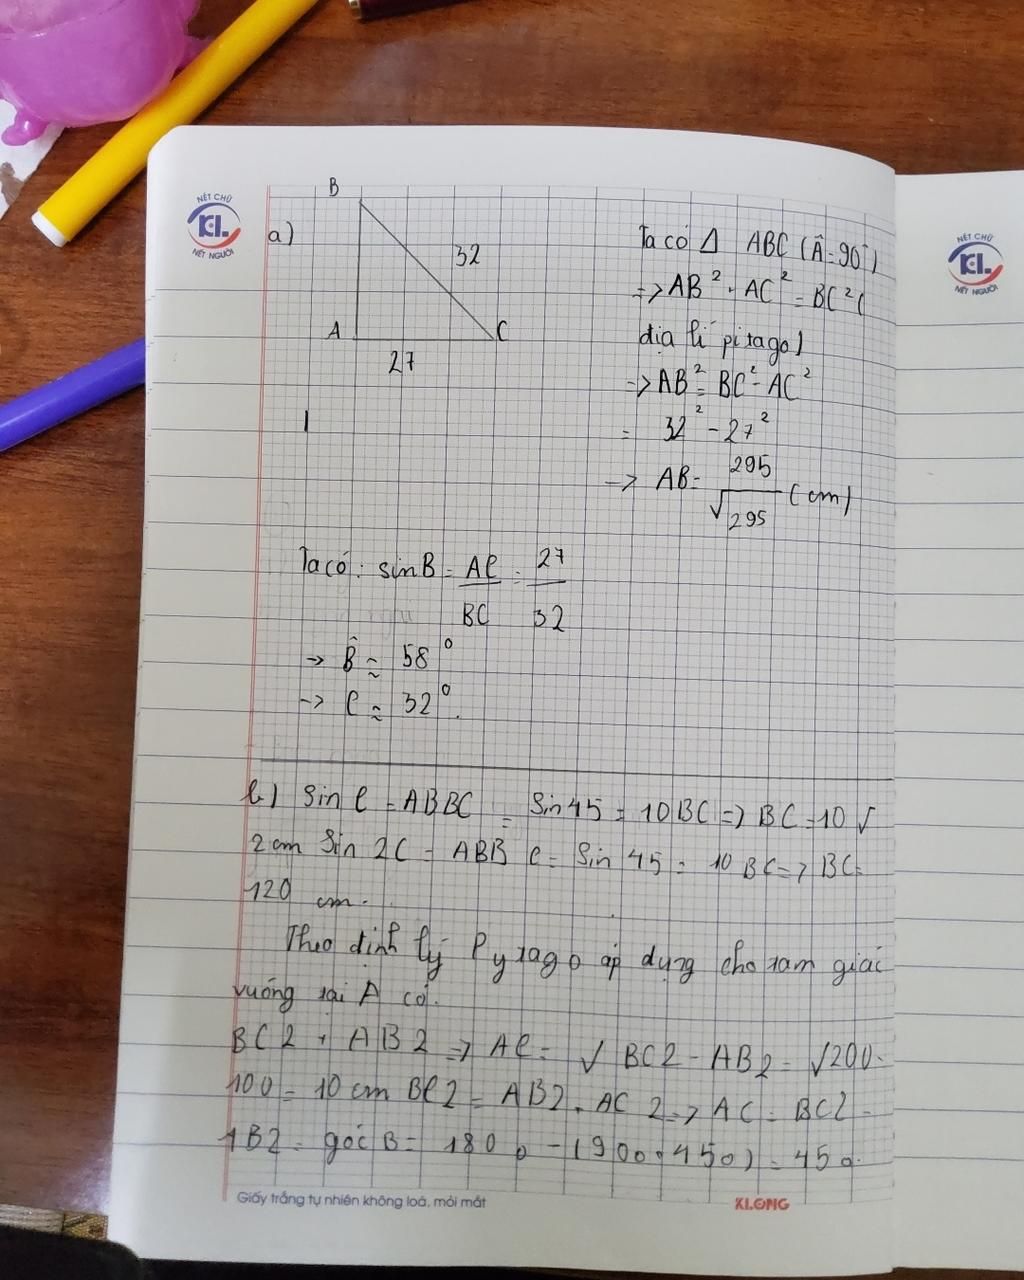 NÉT CHỮ
KL
NẾT NGƯỜI
a)
B
32
A
C
27
Ta có Δ ABC (Â=90°)
=> AB² + AC² = BC² (
địa lí pitago)
=> AB² = BC² - AC²
= 32² - 27²
-> AB = 295
√295 (cm)
Ta có: sinB = AC/BC = 27/32
-> B̂ ≈ 58°
-> C ≈ 32°.
b) Sin C = ABBC = Sin45 = 10BC => BC = 10√
2cm Sin 2C = ABB C = Sin 45 = 10BC => BC =
120 cm.
Theo định lý Pytago áp dụng cho tam giác
vuông tại A có.
BC2 + AB2 => AC = √ BC2 - AB2 = √200-
100 = 10cm BC2 = AB2 + AC2 => AC = BC2 -
AB2 = góc B = 180o - (90o+45o) = 45o.
Giấy trắng tự nhiên không loá, mỏi mắt
KLONG
NÉT CHỮ
KL
NẾT NGƯỜI